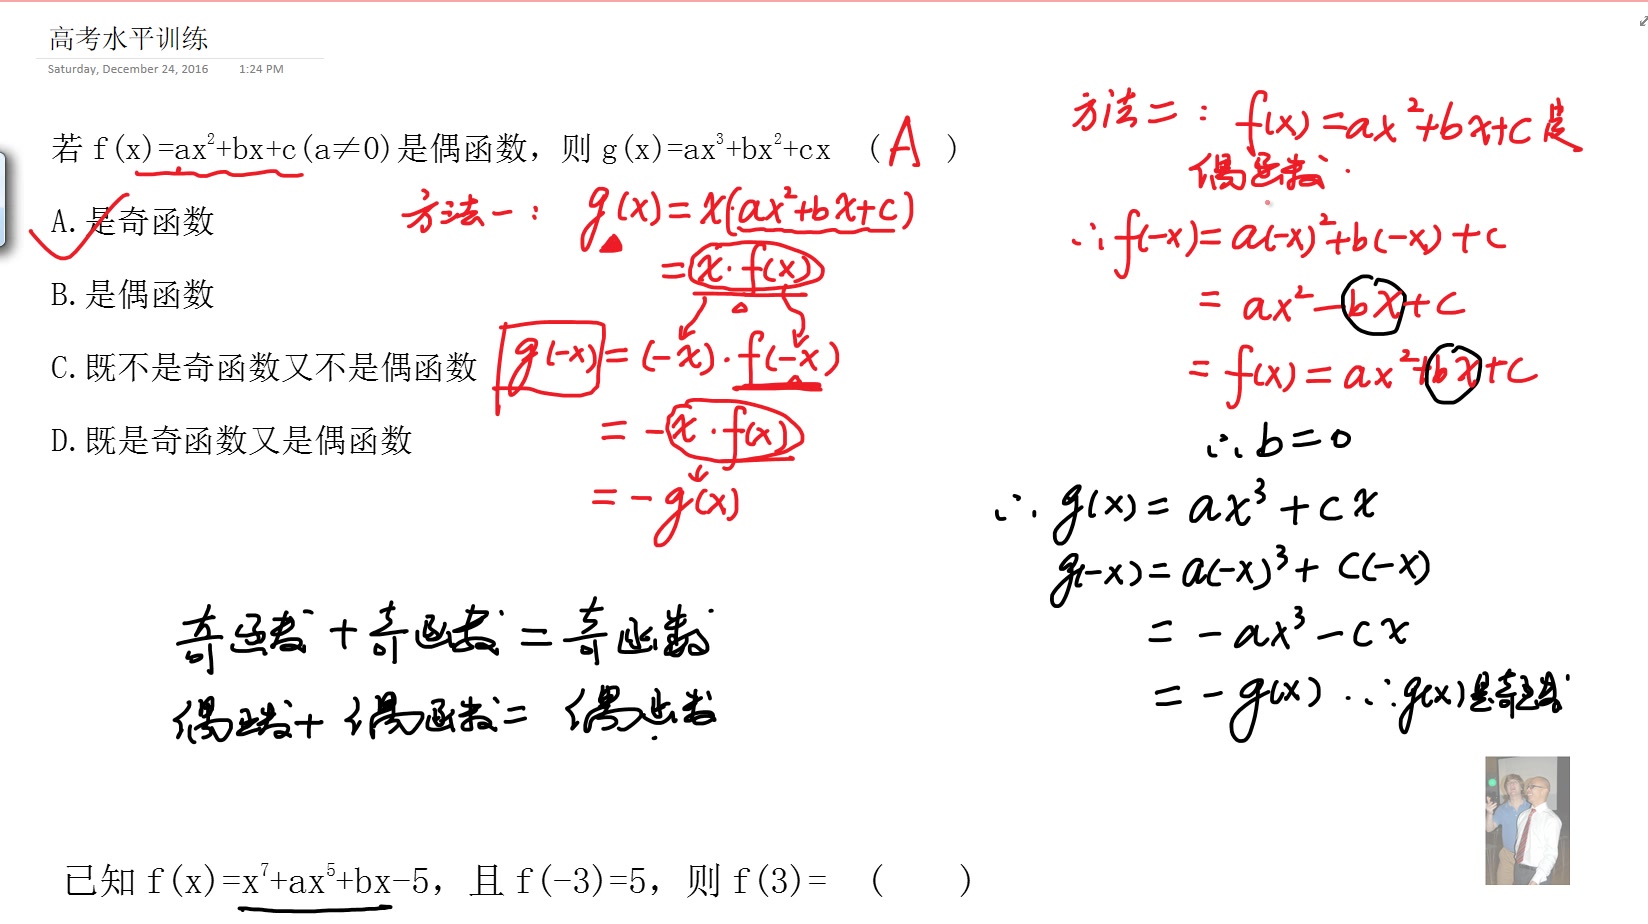 高考水平训练
Saturday, December 24, 2016 1:24 PM
若 f(x)=ax²+bx+c(a≠0)是偶函数，则 g(x)=ax³+bx²+cx （ A ）
A.是奇函数
B.是偶函数
C.既不是奇函数又不是偶函数
D.既是奇函数又是偶函数
方法一：g(x)=x(ax²+bx+c)
=x·f(x)
g(-x)=(-x)·f(-x)
=-x·f(x)
=-g(x)
方法二：f(x)=ax²+bx+c是
偶函数.
∴f(-x)=a(-x)²+b(-x)+c
=ax²-bx+c
=f(x)=ax²+bx+c
∴b=0
∴g(x)=ax³+cx
g(-x)=a(-x)³+c(-x)
=-ax³-cx
=-g(x).∴g(x)是奇函数
奇函数+奇函数=奇函数
偶函数+偶函数=偶函数
已知 f(x)=x⁷+ax⁵+bx-5，且 f(-3)=5，则 f(3)= （ ）